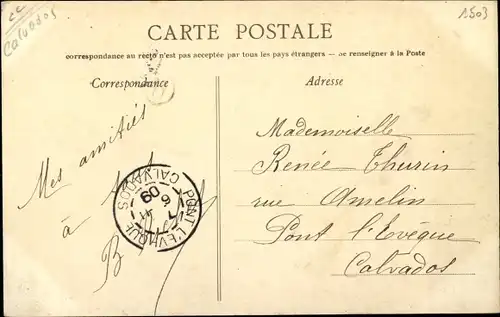 cc
Calvados
1503
CARTE POSTALE
correspondance au recto n'est pas acceptée par tous les pays étrangers — se renseigner à la Poste
Correspondance
Adresse
Mes amitiés
à
B
PONT L'EVEQUE
CALVADOS
09
Mademoiselle
Renée Thurin
rue Amelin
Pont l'Evêque
Calvados